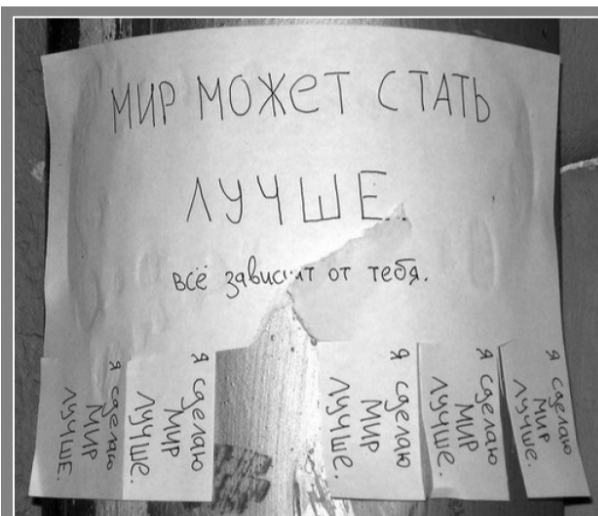 МИР МОЖЕТ СТАТЬ
ЛУЧШЕ..
всё зависит от тебя.
я сделаю
МИР
ЛУЧШЕ.
я сделаю
МИР
ЛУЧШЕ.
я сделаю
МИР
ЛУЧШЕ.
я сделаю
МИР
ЛУЧШЕ.
я сделаю
МИР
ЛУЧШЕ.